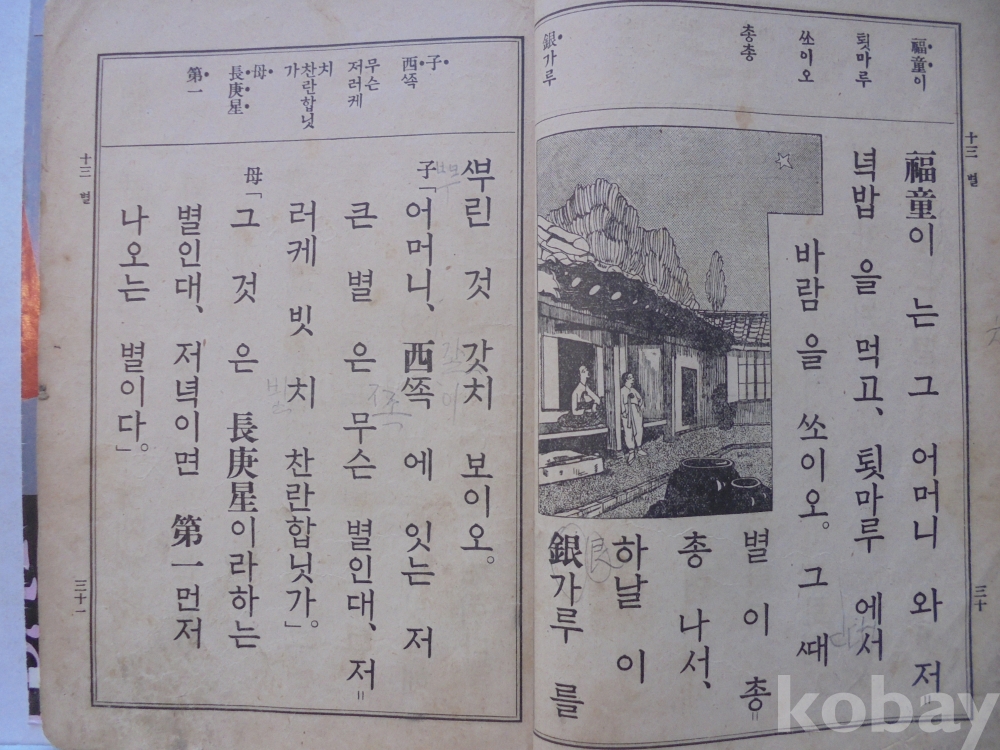 福童이
툇마루
쏘이오
총총
銀가루
十三 별
三十
福童이 는 그 어머니 와 저=
녁밥 을 먹고、툇마루 에서
바람 을 쏘이오。그 ᄯᅢ
별 이 총=
총 나서、
하날 이
銀가루 를
子
西ᄶᅩᆨ
무슨
저러케
치
찬란합닛
가
母
長庚星
第一
ᄲᅮ린 것 갓치 보이오。
子「어머니、西ᄶᅩᆨ 에 잇는 저
큰 별 은 무슨 별인대、저=
러케 빗 치 찬란합닛가。」
母「그 것 은 長庚星이라하는
별인대、저녁이면 第一 먼저
나오는 별이다。」
十三 별
三十一
kobay